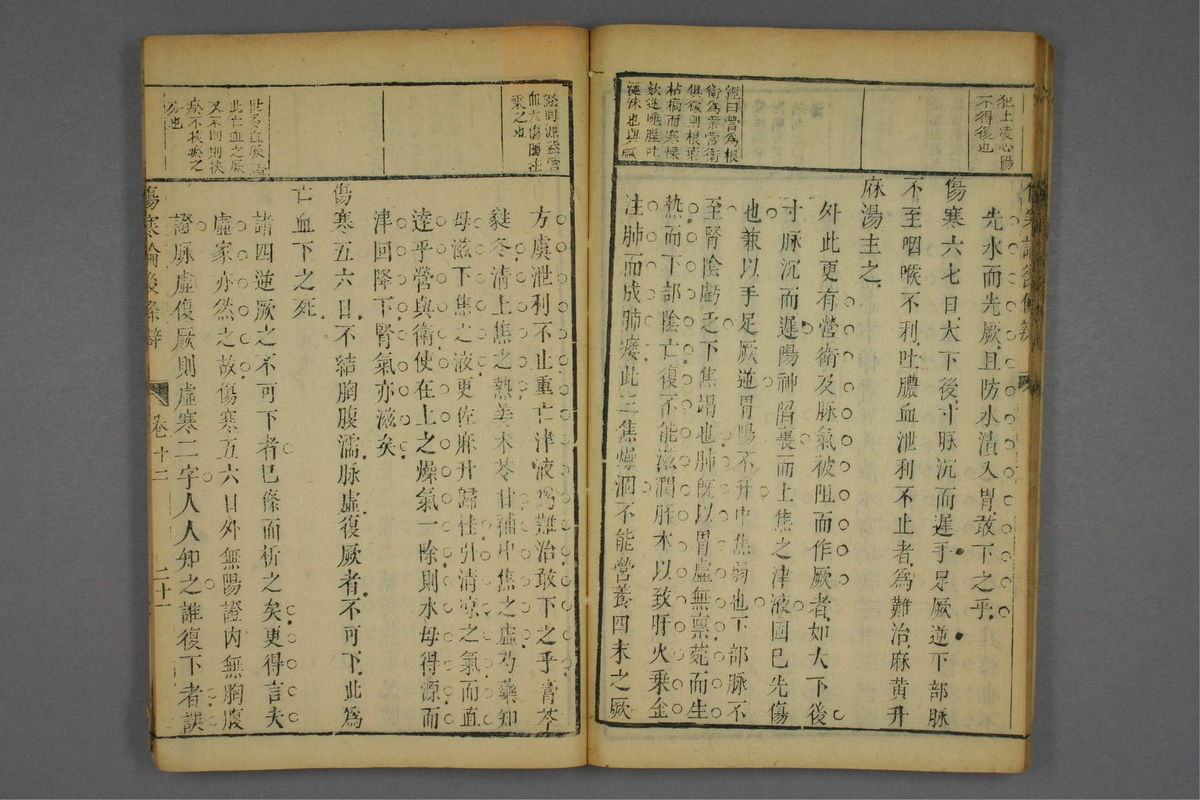 犯上凌心陽
不得復也
先水而先厥且防水漬入胃敢下之乎
傷寒六七日大下後寸脉沉而遲手足厥逆下部脉
不至咽喉不利吐膿血泄利不止者爲難治麻黃升
麻湯主之
外此更有營衛及脉氣被阻而作厥者如大下後
寸脉沉而遲陽神陷喪而上焦之津液固已先傷
也兼以手足厥逆胃陽不升中焦弱也下部脉不
至腎陰虧乏下焦竭也肺旣以胃虛無稟薨而生
熱而下部陰亡復不能滋潤肝木以致肝火乘金
注肺而成肺痿此三焦燥涸不能營養四末之厥
經曰營爲根
衛爲葉營衛
俱微則根葉
枯槁而寒慄
欬逆唾腥吐
涎沫也與厥
證同源蓋營
血大傷陽往
乘之也
方虞泄利不止重亡津液爲難治敢下之乎膏芩
蕤冬清上焦之熱姜木苓甘補中焦之虛芍藥知
母滋下焦之液更佐麻升歸桂引清凉之氣而直
逹乎營與衛使在上之燥氣一除則水母得源而
津回降下腎氣亦滋矣
傷寒五六日不結胸腹濡脉虛復厥者不可下此爲
亡血下之死
諸四逆厥之不可下者已條而析之矣更得言夫
虛家亦然之故傷寒五六日外無陽證内無胸腹
證脉虛復厥則虛寒二字人人知之誰復下者誤
此亡血之厥
又不同則挾
瘀不挾瘀之
分也
傷寒論後條辯
卷十二
二十一